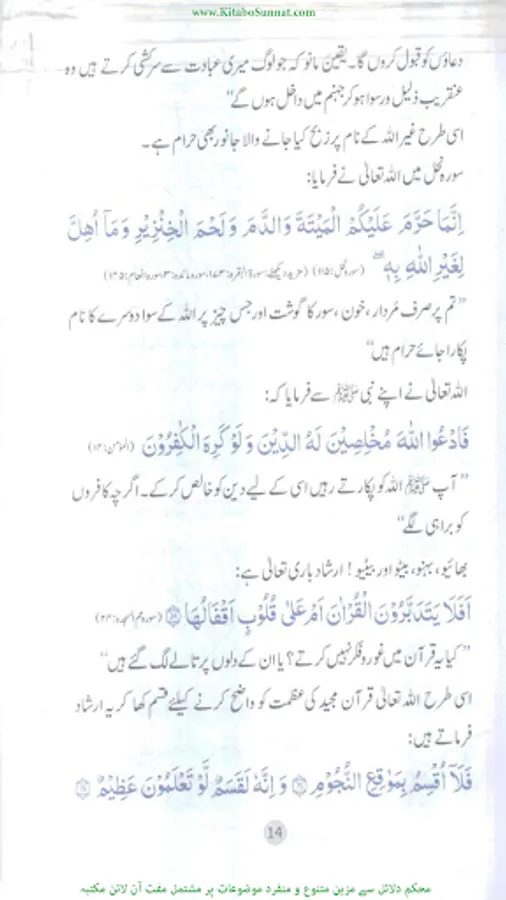 www.KitaboSunnat.com
دعاؤں کو قبول کروں گا۔ یقین مانو کہ جو لوگ میری عبادت سے سرکشی کرتے ہیں وہ
عنقریب ذلیل و رسوا ہو کر جہنم میں داخل ہوں گے‘‘
اسی طرح غیر اللہ کے نام پر ذبح کیا جانے والا جانور بھی حرام ہے۔
سورہ نحل میں اللہ تعالیٰ نے فرمایا:
اِنَّمَا حَرَّمَ عَلَیْکُمُ الْمَیْتَةَ وَالدَّمَ وَلَحْمَ الْخِنْزِیْرِ وَمَآ اُهِلَّ
لِغَیْرِ اللّٰهِ بِهٖ ۚ (سورہ نحل: ۱۱۵) (مزید دیکھئے: سورۃ البقرہ: ۱۷۳، سورہ مائدہ: ۳، سورہ انعام: ۱۴۵)
’’تم پر صرف مُردار، خون، سور کا گوشت اور جس چیز پر اللہ کے سوا دوسرے کا نام
پکارا جائے حرام ہیں‘‘
اللہ تعالیٰ نے اپنے نبی ﷺ سے فرمایا کہ:
فَادْعُوا اللّٰهَ مُخْلِصِیْنَ لَهُ الدِّیْنَ وَلَوْ کَرِهَ الْکٰفِرُوْنَ (المؤمن: ۱۴)
’’آپ ﷺ اللہ کو پکارتے رہیں اسی کے لیے دین کو خالص کر کے۔ اگرچہ کافروں
کو برا ہی لگے‘‘
بھائیو، بہنو، بیٹو اور بیٹیو! ارشاد باری تعالیٰ ہے:
اَفَلَا یَتَدَبَّرُوْنَ الْقُرْاٰنَ اَمْ عَلٰی قُلُوْبٍ اَقْفَالُهَا (سورہ حم السجدہ: ۲۴)
’’کیا یہ قرآن میں غور و فکر نہیں کرتے؟ یا ان کے دلوں پر تالے لگ گئے ہیں‘‘
اسی طرح اللہ تعالیٰ قرآن مجید کی عظمت کو واضح کرنے کیلئے قسم کھا کر یہ ارشاد
فرماتے ہیں:
فَلَآ اُقْسِمُ بِمَوٰقِعِ النُّجُوْمِ ۝ وَاِنَّهٗ لَقَسَمٌ لَّوْ تَعْلَمُوْنَ عَظِیْمٌ ۝
14
محکم دلائل سے مزین متنوع و منفرد موضوعات پر مشتمل مفت آن لائن مکتبہ